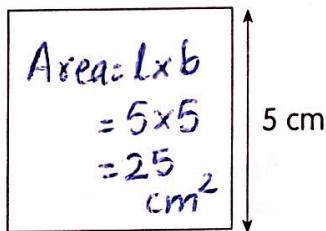 Area = l × b
= 5 × 5
= 25
cm²
5 cm